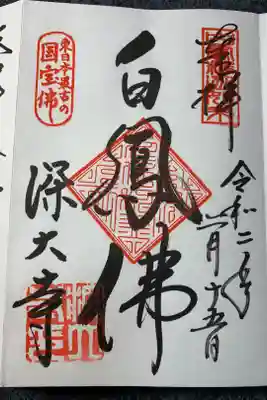 奉拝
令和二年
六月十五日
白鳳佛
東日本最古の
国宝佛
深大寺